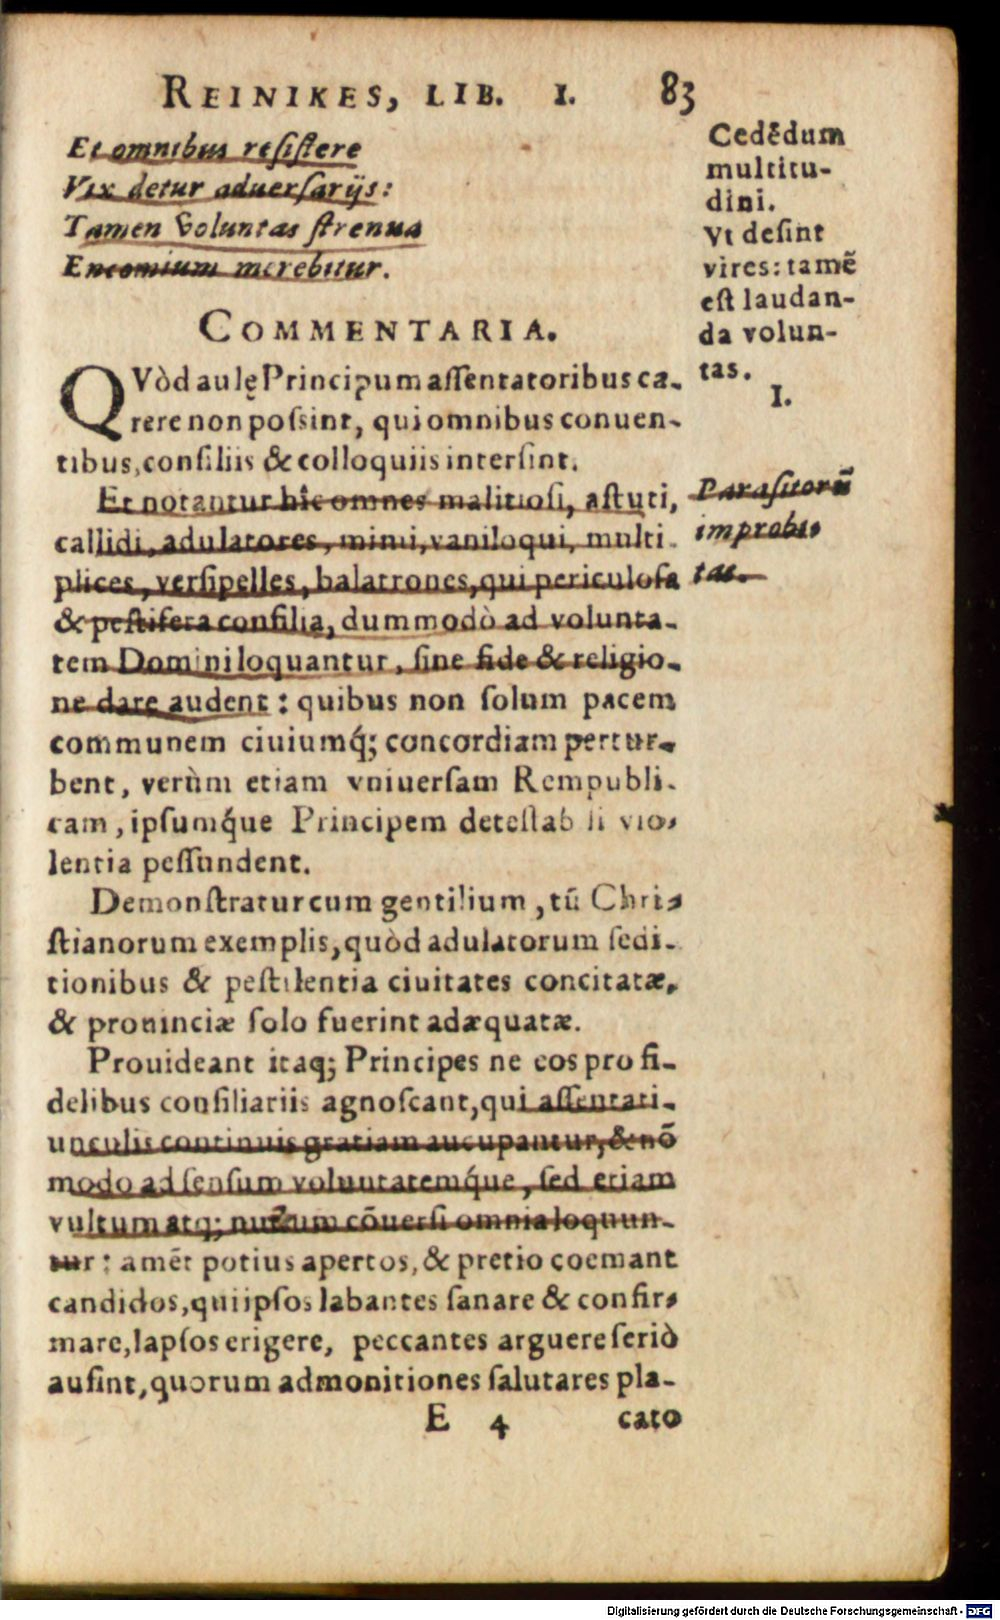 REINIKES, LIB. I. 83
Et omnibus reſiſtere
Vix detur aduerſarijs:
Tamen voluntas ſtrenua
Encomium merebitur.
Cedēdum
multitu-
dini.
Vt deſint
vires: tamē
eſt laudan-
da volun-
tas.
COMMENTARIA.
I.
QVòd aulę Principum aſſentatoribus ca-
rere non poſsint, qui omnibus conuen-
tibus, conſiliis & colloquiis interſint.
Et notantur hîc omnes malitioſi, aſtuti,
callidi, adulatores, mimi, vaniloqui, multi-
plices, verſipelles, balatrones, qui periculoſa
& peſtifera conſilia, dummodò ad volunta-
tem Domini loquantur, ſine fide & religio-
ne dare audent: quibus non ſolum pacem
communem ciuiumq́; concordiam pertur-
bent, verùm etiam vniuerſam Rempubli-
cam, ipſumq́ue Principem deteſtab li vio-
lentia peſſundent.
Paraſitorū
improbi-
tas.
Demonſtratur cum gentilium, tū Chri-
ſtianorum exemplis, quòd adulatorum ſedi-
tionibus & peſtilentia ciuitates concitatæ,
& prouinciæ ſolo fuerint adæquatæ.
Prouideant itaq; Principes ne eos pro fi-
delibus conſiliariis agnoſcant, qui aſſentati-
unculis continuis gratiam aucupantur, & nō
modo ad ſenſum voluntatemq́ue, ſed etiam
vultum atq; nutum cōuerſi omnia loquun-
tur: amēt potius apertos, & pretio coemant
candidos, qui ipſos labantes ſanare & confir-
mare, lapſos erigere, peccantes arguere ſeriò
auſint, quorum admonitiones ſalutares pla-
E 4 cato
Digitalisierung gefördert durch die Deutsche Forschungsgemeinschaft - DFG